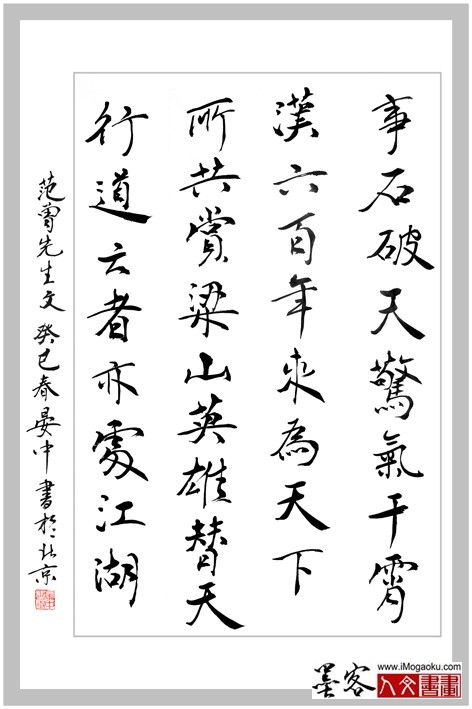 事石破天驚氣干霄
漢六百年來為天下
所共賞梁山英雄替天
行道云者亦處江湖
范曾先生文 癸巳春晏中書於北京
墨客
www.iMogaoku.com
人文書畫